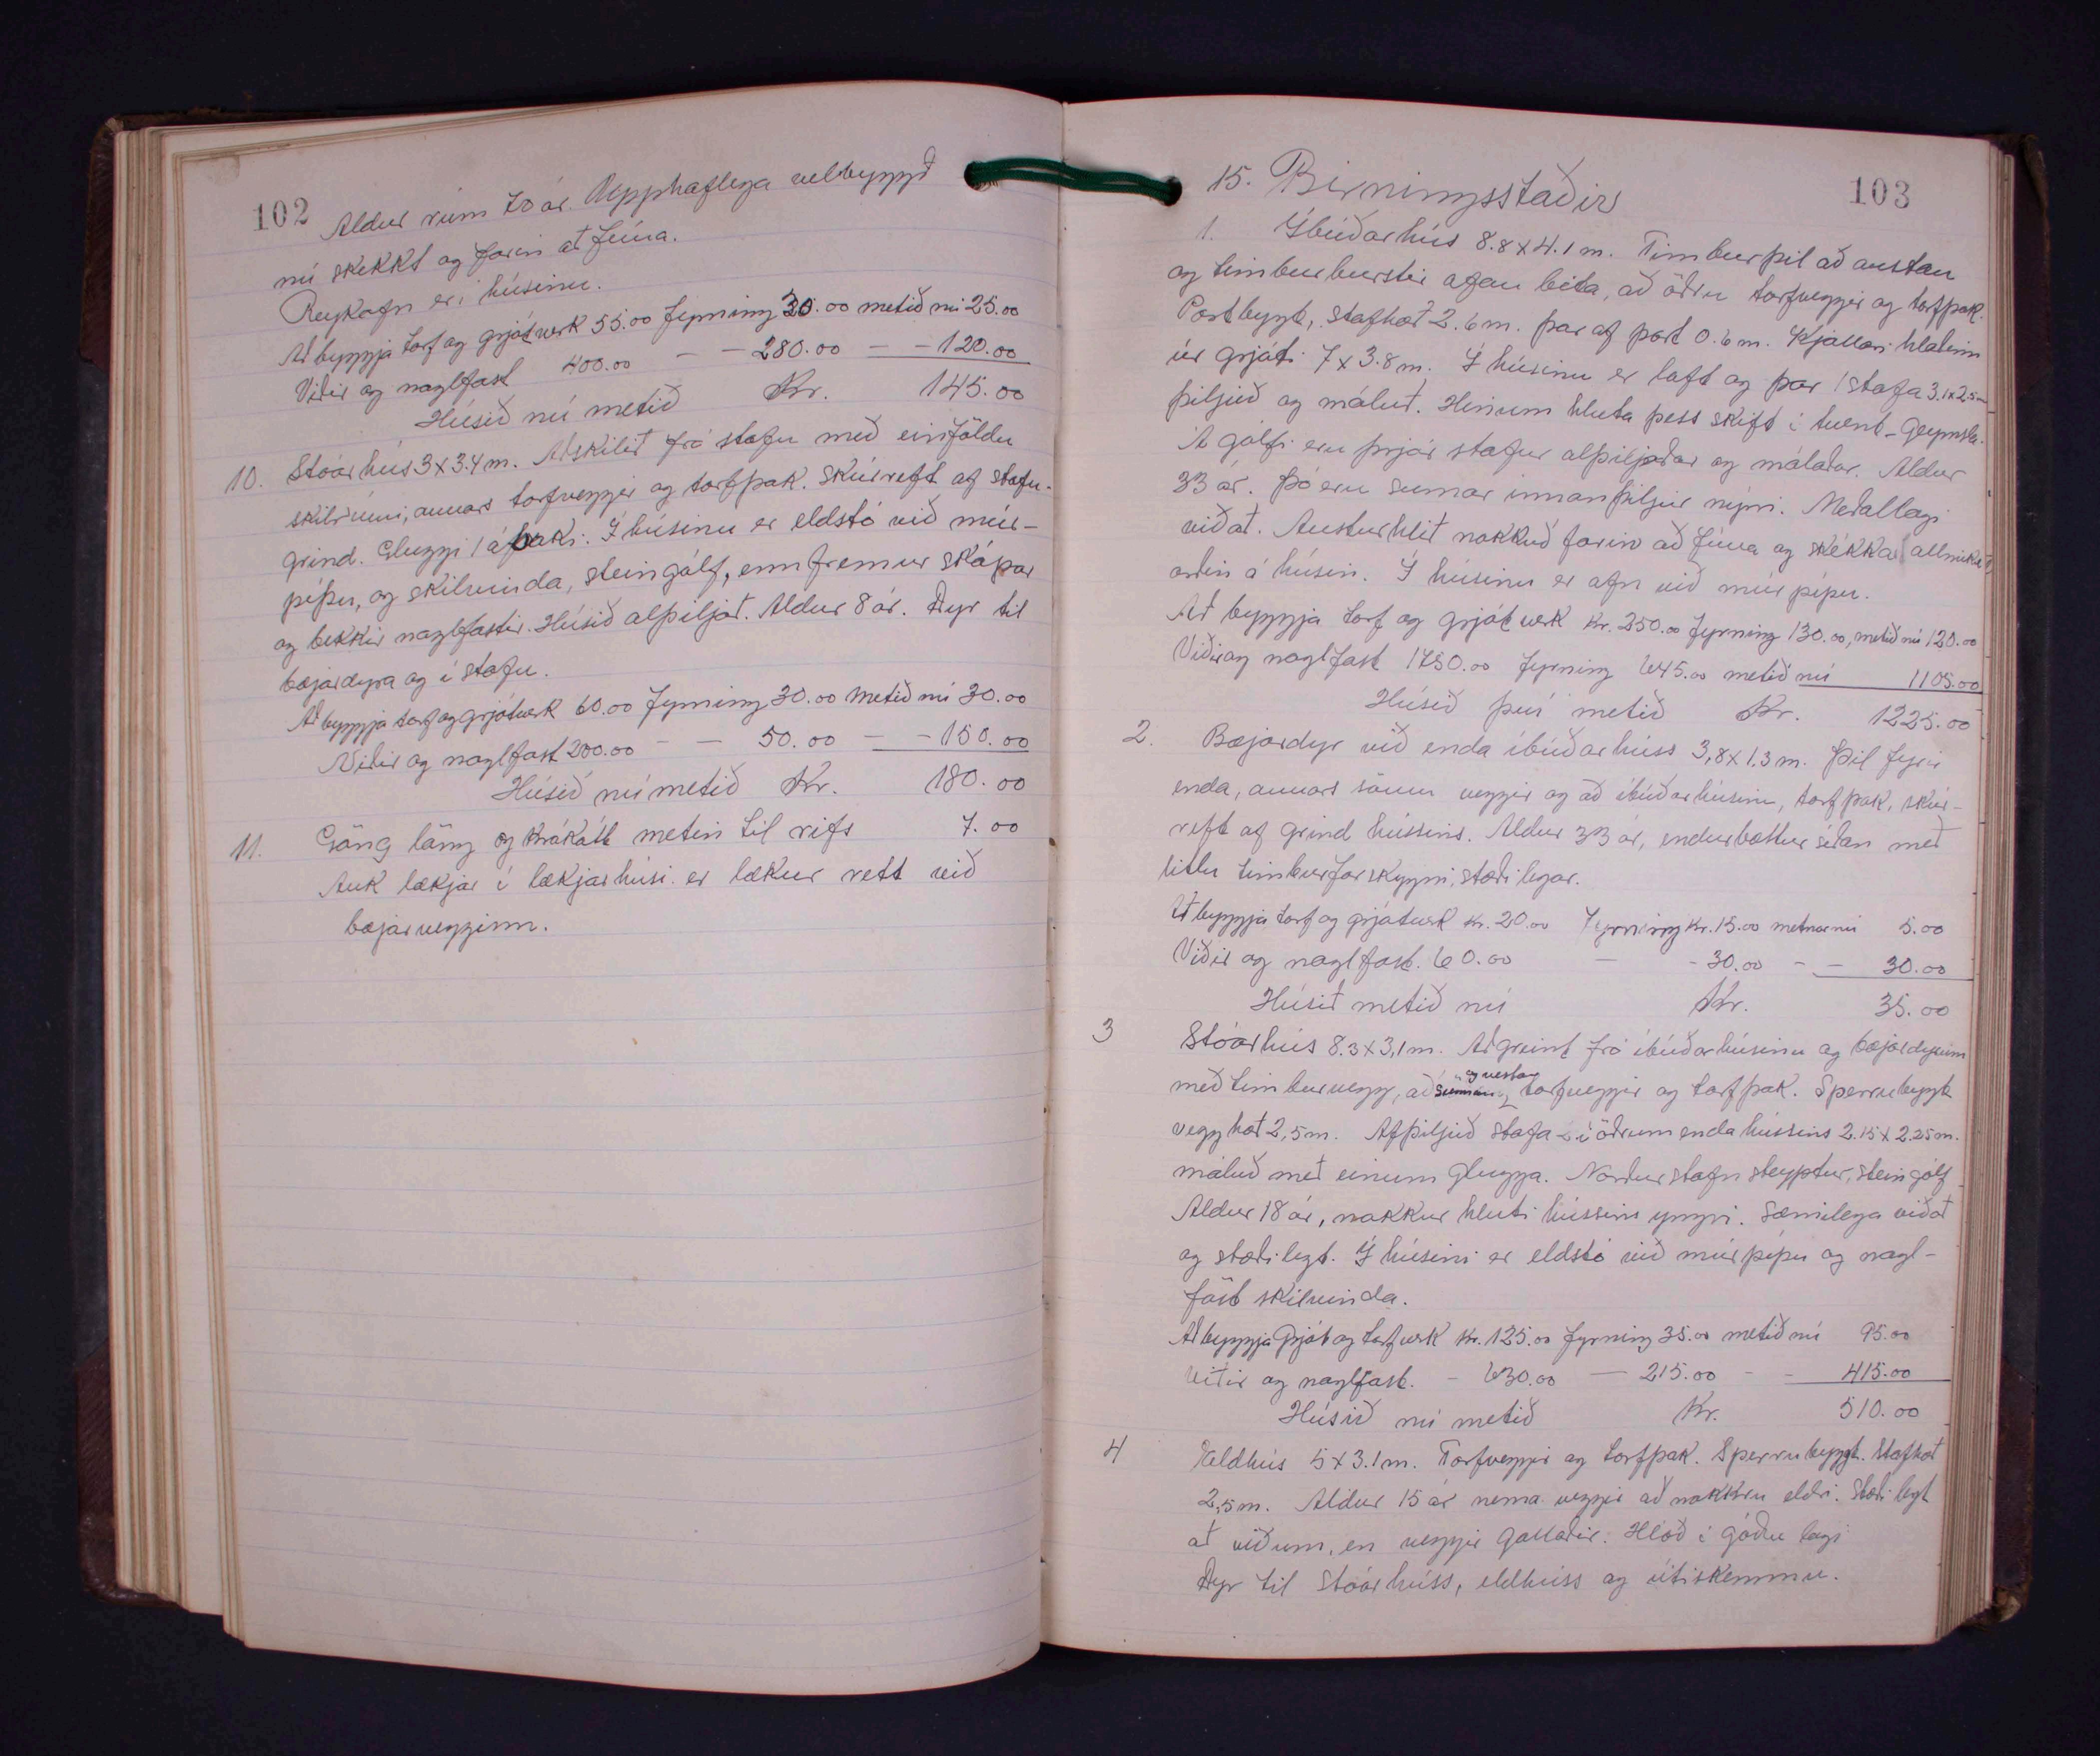 102
Aldur rúm 70 ár. Upphaflega velbyggð
nú skekkt og farin at fúna.
Reykofn er í húsinu.
At byggja torf og grjótverk 55.00 fyrning 30.00 metið nú 25.00
Viðir og naglfast 400.00 — — 280.00 — — 120.00
Húsið nú metið Kr. 145.00
10. Stóarhús 3 x 3.4 m. Atskilit frá stofu með einföldu
skilrúmi, annars torfveggir og torfþak. Skúrreft af stofu-
grind. Gluggi 1 á þaki. Í húsinu er eldstó við múr-
pípu, og skilvinda, steingólf, enn fremur skápar
og bekkir naglfastir. Húsið alþiljat. Aldur 8 ár. Dyr til
bæjardyra og í stofu.
At byggja torf og grjótverk 60.00 fyrning 30.00 metið nú 30.00
Viðir og naglfast 200.00 — — 50.00 — — 150.00
Húsið nú metið Kr. 180.00
11. Göng löng og krákótt metin til rifs 7.00
Auk lækjar í lækjarhúsi er lækur rett við
bæjarvegginn.
103
15. Birningsstaðir
1. Íbúðarhús 8.8 x 4.1 m. Timburþil að austan
og timburburstir ofan bita, að öðru torfveggir og torfþak.
Portbygt, stafhæt 2.6 m. þar af port 0.6 m. Kjallari hlatinn
úr grjóti 7 x 3.8 m. Í húsinu er loft og þar 1 stofa 3.1 x 2.5 m
þiljuð og málut. Hinum hluta þess skift í tvent - Geymsla.
Á gólfi eru þrjár stofur alþiljaðar og málatar. Aldur
33 ár. Þó eru sumar innanþiljur nýrri. Metallagi
viðat. Austurhlit nokkuð farin að fúna og skekkja allmikil
ortin á húsin. Í húsinu er ofn við múrpípu.
At byggja torf og grjótverk kr. 250.00 fyrning 130.00, metið nú 120.00
Viðir og naglfast 1750.00 fyrning 645.00 metið nú 1105.00
Húsið því metið Kr. 1225.00
2. Bæjardyr við enda íbúðarhúss 3,8 x 1.3 m. Þil fyrir
enda, annars sömu veggir og að íbúðarhúsinu, torfþak, skúr-
reft af grind hússins. Aldur 33 ár, endurbættur síðan með
litlu timburforskyggni, stæðilegar.
At byggja torf og grjótverk kr. 20.00 Fyrning kr. 15.00 metnar nú 5.00
Viðir og naglfast. 60.00 — - 30.00 - — 30.00
Húsit metið nú Kr. 35.00
3 Stóarhús 8.3 x 3,1 m. Atgreint frá íbúðarhúsinu og bæjardyrum
og vestan
með timburvegg, að sunnan torfveggir og torfþak. Sperrubygt
vegghæt 2,5 m. Afþiljuð stofa í öðrum enda hússins 2.15 x 2.25 m.
máluð með einum glugga. Norðurstafn steyptur, steingólf
Aldur 18 ár, nokkur hluti hússins yngri. Sæmilega viðat
og stæðilegt. Í húsini er eldstó við múrpípu og nagl-
föst skilvinda.
At byggja Grjót og torfverk kr. 125.00 fyrning 35.00 metið nú 95.00
Viðir og naglfast. - 630.00 — 215.00 - - 415.00
Húsið nú metið Kr. 510.00
4 Eldhús 5 x 3.1 m. Torfveggir og torfþak. Sperrubyggt. Stafhæt
2,5 m. Aldur 15 ár nema veggir að nokkru eldri. Stæðilegt
at viðum, en veggir gallaðir. Hlóð í góðu lagi
Dyr til stóarhúss, eldhúss og útiskemmu.